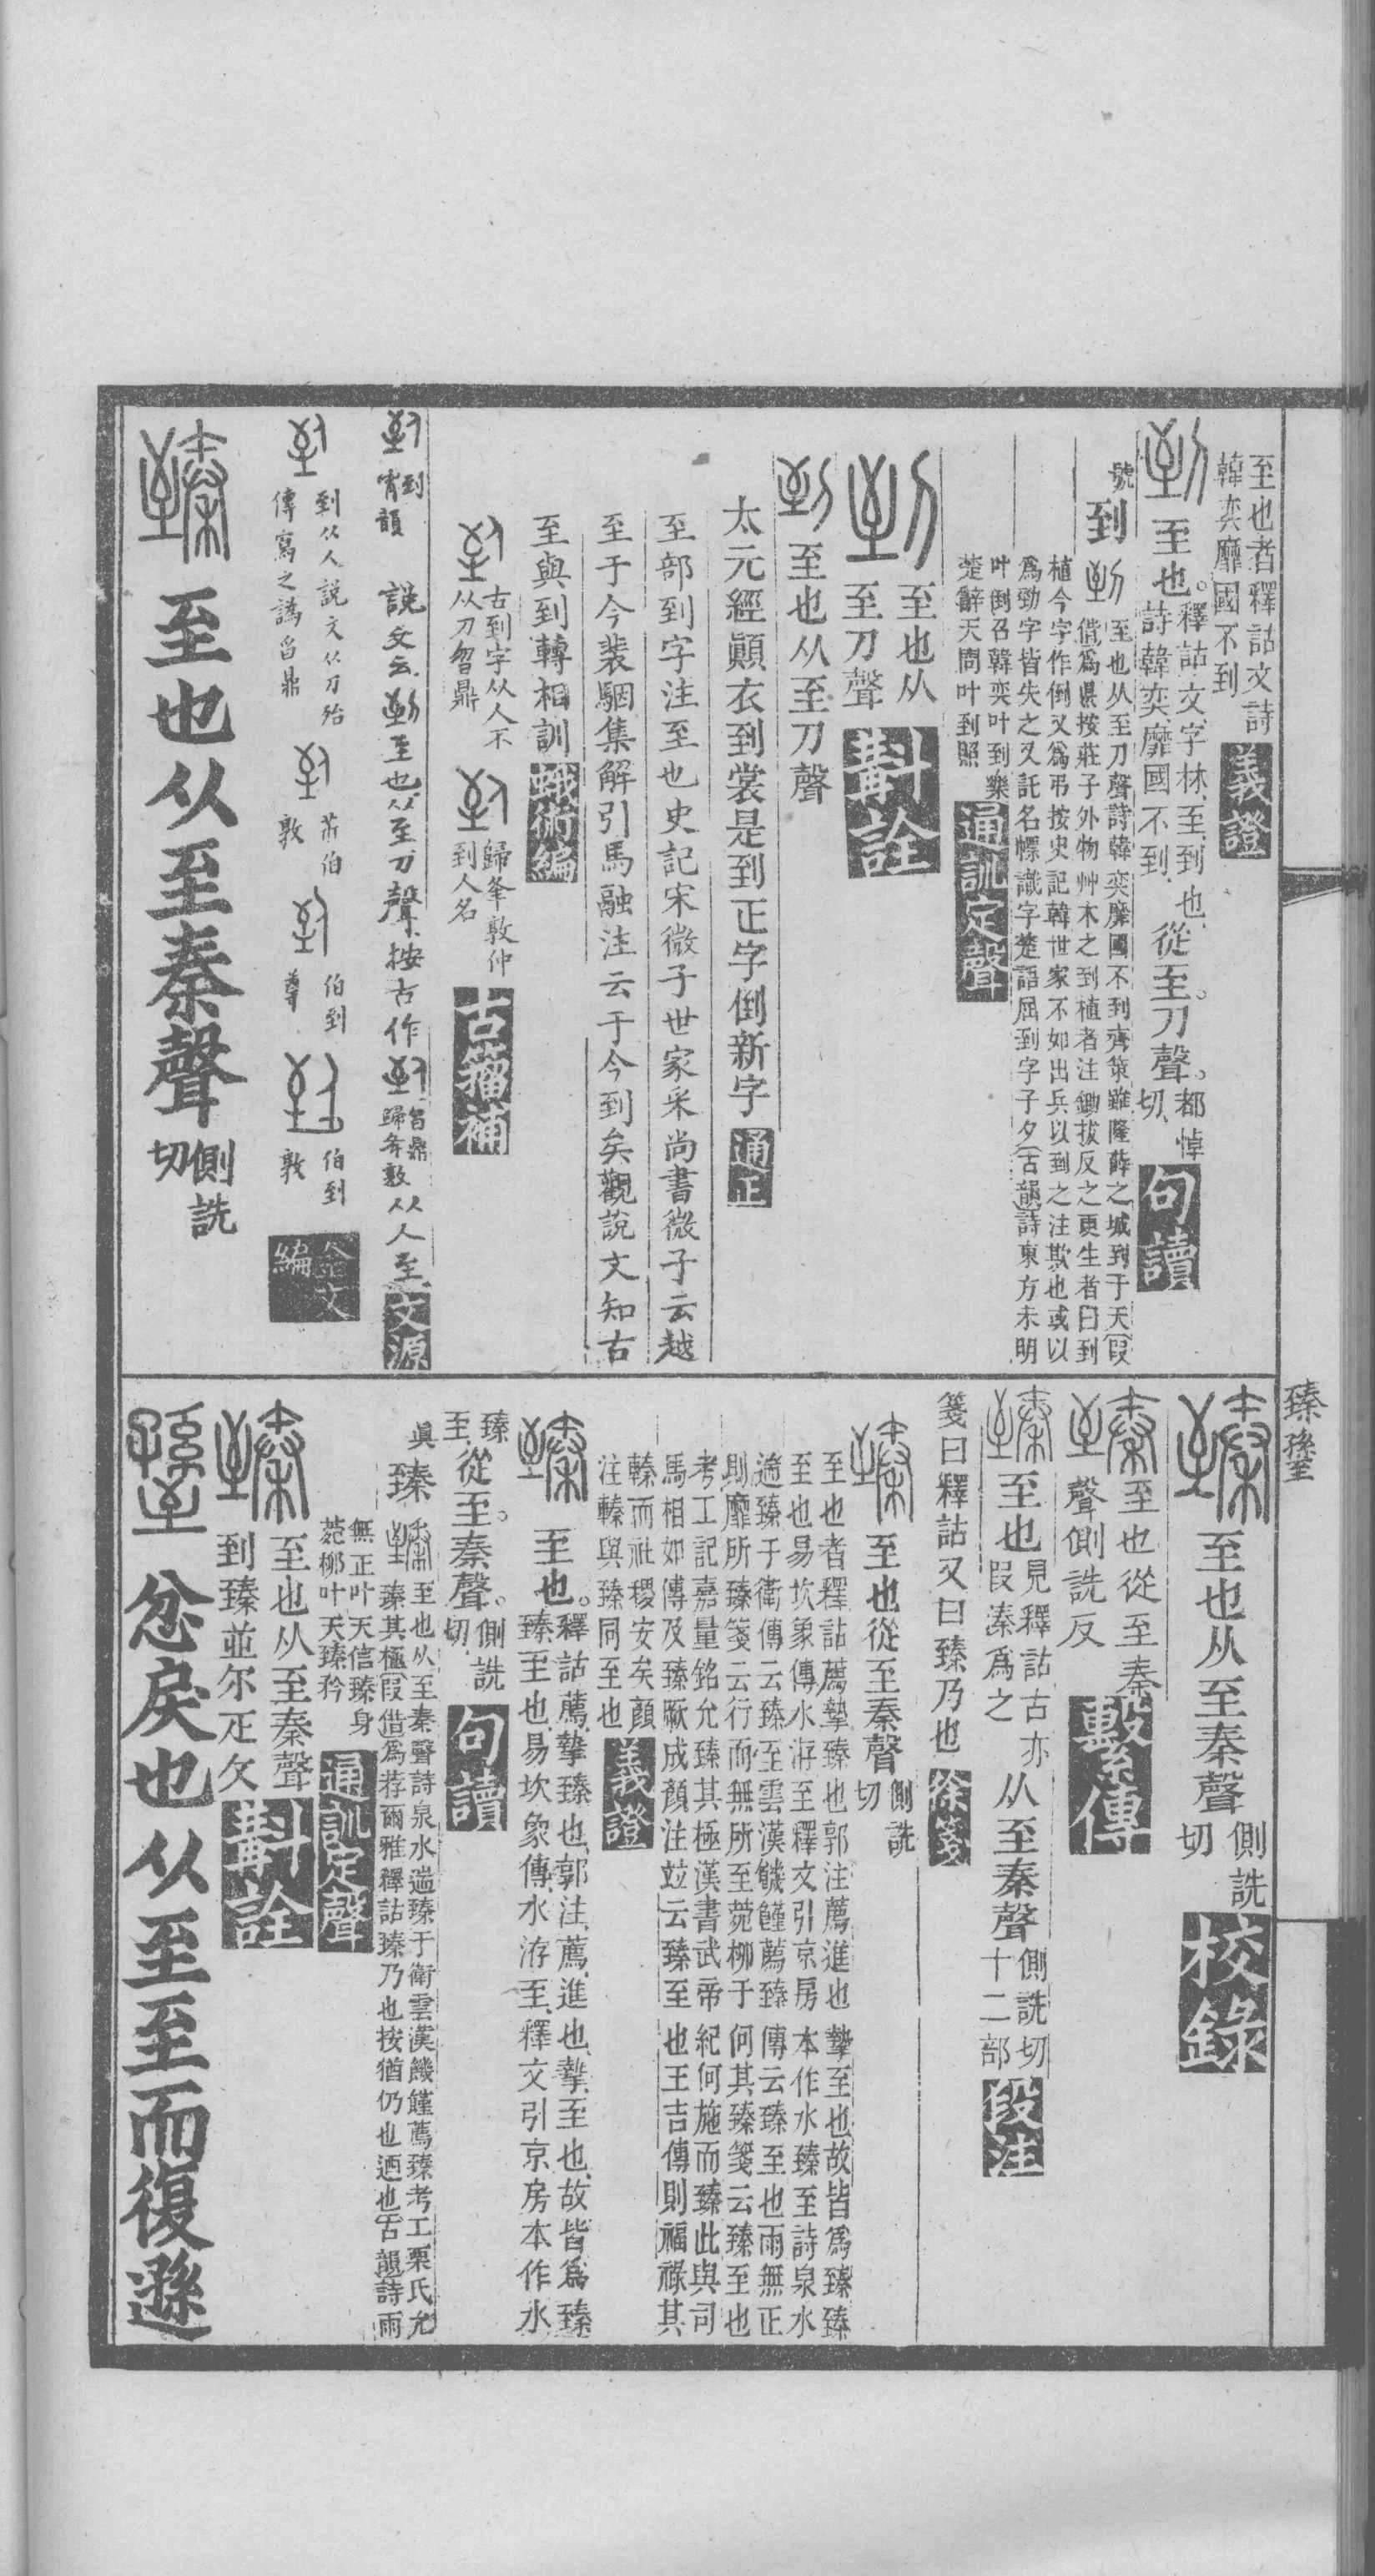 至也者釋詁文詩
韓奕靡國不到
義證
至也。釋詁文、字林、至、到也、
詩韓奕、靡國不到、
從至。刀聲。都悼
切、
句讀
號
到
至也从至刀聲詩韓奕靡國不到齊策雖隆薛之城到于天(叚
借爲県按莊子外物艸木之到植者注鋤拔反之更生者曰到
植今字作倒又爲弔按史記韓世家不如出兵以到之注欺也或以
爲勁字皆失之又託名幖識字楚語屈到字子夕(古韻詩東方未明
叶倒召韓奕叶到樂
楚辭天問叶到照
通訓定聲
至也从
至刀聲
斠詮
至也从至刀聲
太元經顚衣到裳是到正字倒新字
通正
至部到字注至也史記宋微子世家采尚書微子云越
至于今裴駰集解引馬融注云于今到矣觀說文知古
至與到轉相訓
蛾術編
古到字从人不
从刀曶鼎
歸夆敦仲
到人名
古籀補
到
宵韻
說文云到至也从至刀聲按古作
曶鼎
歸夆敦
从人至
文源
到从人說文从刀殆
傳寫之譌曶鼎
伯
敦
伯到
尊
伯到
敦
金文
編
至也从至秦聲
側詵
切
臻
至也从至秦聲
側詵
切
校錄
至也從至秦
聲側詵反
繫傳
至也
見釋詁古亦
叚溱爲之
从至秦聲
側詵切
十二部
段注
箋曰釋詁又曰臻乃也
徐箋
至也從至秦聲
側詵
切
至也者釋詁薦摯臻也郭注薦進也摯至也故皆爲臻臻
至也易坎象傳水洊至釋文引京房本作水臻至詩泉水
遄臻于衛傳云臻至雲漢饑饉薦臻傳云臻至也雨無正
則靡所臻箋云行而無所至菀柳于何其臻箋云臻至也
考工記嘉量銘允臻其極漢書武帝紀何施而臻此與司
馬相如傳及臻厥成顏注竝云臻至也王吉傳則福祿其
轃而社稷安矣顏
注轃與臻同至也
義證
至也。釋詁、薦、摯、臻也、郭注、薦、進也、摯、至也、故皆爲臻
臻、至也、易坎象傳、水洊至、釋文引京房本作水
臻
至、
從至。秦聲。側詵
切、
句讀
眞
臻
至也从至秦聲詩泉水遄臻于衛雲漢饑饉薦臻考工㮚氏允
臻其極(叚借爲荐爾雅釋詁臻乃也按猶仍也迺也(古韻詩雨
無正叶天信臻身
菀柳叶天臻矜
通訓定聲
至也从至秦聲
到臻並尔疋文
斠詮
忿戾也从至至而復遜